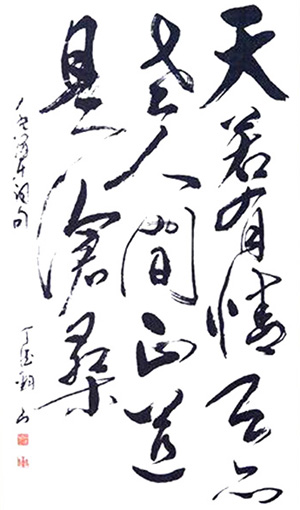 天若有情天亦
老人間正道
是滄桑
毛泽东句